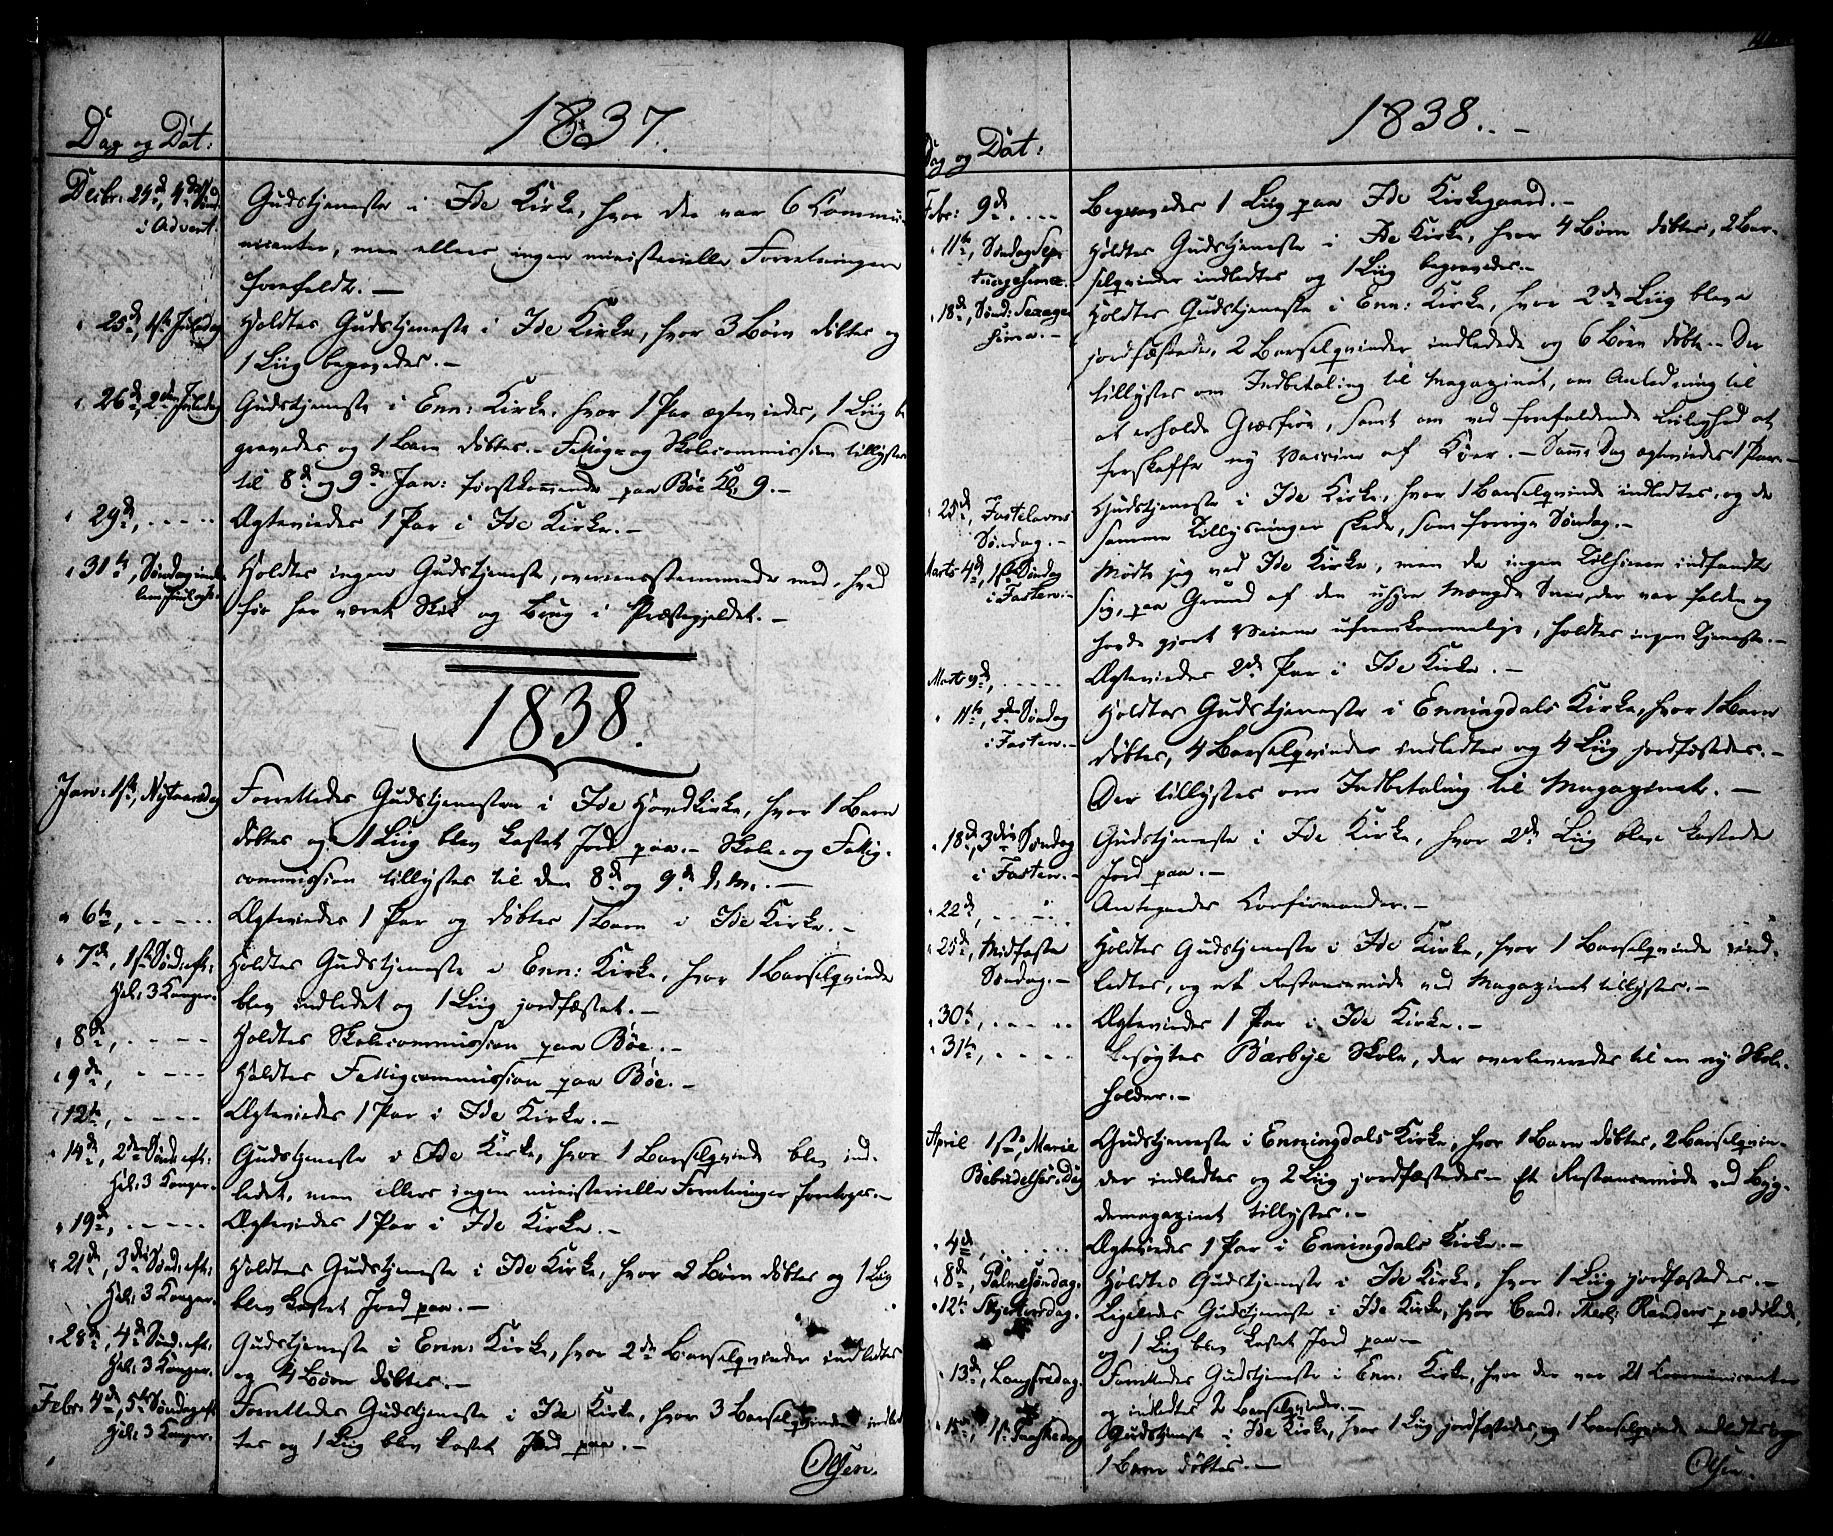 1837.
Dag og Dat:
Decbr: 24d, 4de Sønd. i Advent. Gudstjeneste i Ide Kirke, hvor der var 6 Kommu-
nicanter, men ellers ingen ministerielle Forretninger
forefaldt. —
" 25d, 1ste Juledag Holdtes Gudstjeneste i Ide Kirke, hvor 3 Børn døbtes og
1 Liig begravedes. —
" 26d, 2den Juledag Gudstjeneste i Enn: Kirke, hvor 1 Par ægteviedes, 1 Liig be-
gravedes og 1 Barn døbtes. – Fattig- og Skolecommission tillystes
til 8d og 9de Jan: førstkommende paa Bøe Kl. 9. —
" 29d, ..... Ægteviedes 1 Par i Ide Kirke. —
" 31te, Søndag mellem Juul og Holdtes ingen Gudstjeneste, overensstemmende med, hvad
før har været Skik og Brug i Præstegjeldet. —
1838.
Jan: 1ste, Nytaarsdag Forrettedes Gudstjenesten i Ide Hovedkirke, hvor 1 Barn
døbtes og 1 Liig blev kastet Jord paa. – Skole- og Fattig-
commission tillystes til den 8d og 9de d. M. —
" 6te, ..... Ægteviedes 1 Par og døbtes 1 Barn i Ide Kirke. —
" 7de, 1ste Sønd: eft: Hel: 3 Konger. Holdtes Gudstjeneste i Enn: Kirke, hvor 1 Barselqvinde
blev indledet og 1 Liig jordfæstet. —
" 8de, .... Holdtes Skolecommission paa Bøe. —
" 9de, .... Holdtes Fattigcommission paa Bøe. —
" 12te, .... Ægteviedes 1 Par i Ide Kirke. —
" 14de, 2den Sønd: eft: Hel: 3 Konger. Gudstjeneste i Ide Kirke, hvor 1 Barselqvinde blev ind-
ledet, men ellers ingen ministerielle Forretninger foretoges. —
" 19de, .... Ægteviedes 1 Par i Ide Kirke. —
" 21de, 3die Sønd: eft: Hel: 3 Konger. Holdtes Gudstjeneste i Ide Kirke, hvor 2 Børn døbtes og 1 Liig
blev kastet Jord paa. —
" 28de, 4de Sønd: eft: Hel: 3 Konger. Gudstjeneste i Enn: Kirke, hvor 2de Barselqvinder indledtes
og 4 Børn døbtes. —
Febr: 4de, 5te Søndag eft: Hel: 3 Konger. Forrettedes Gudstjeneste i Ide Kirke, hvor 3 Barselqvinder indled-
tes og 1 Liig blev kastet Jord paa. —
Olsen.
1838. –
Dag og Dat:
Febr: 9d. .... Begravedes 1 Liig paa Ide Kirkegaard. —
" 11te, Søndag Septuagesima. Holdtes Gudstjeneste i Ide Kirke, hvor 4 Børn døbtes, 2 Bar-
selqvinder indledtes og 1 Liig begravedes. —
" 18de, Sønd: Sexagesima. – Holdtes Gudstjeneste i Enn: Kirke, hvor 2de Liig bleve
jordfæstede, 2 Barselqvinder indledede og 6 Børn døbte. – Der
tillystes om Indbetaling til Magazinet, om Anledning til
at erholde Græsfrøe, samt om ved forefaldende Leilighed at
forskaffe ny Vaccine af Køer. – Samme Dag ægteviedes 1 Par. —
" 25de, Fastelavns Søndag. – Gudstjeneste i Ide Kirke, hvor 1 Barselqvinde indledtes, og de
samme Tillysninger skede, som forrige Søndag. —
Marts 4de, 1ste Søndag i Fasten. – Mødte jeg ved Ide Kirke, men da ingen Tilhørere indfandt
sig, paa Grund af den uhyre Mængde Snee, der var falden og
havde gjort Veiene ufremkommelige, holdtes ingen Tjeneste. —
Marts 9de, .... Ægteviedes 2de Par i Ide Kirke. —
" 11te, 2den Søndag i Fasten. – Holdtes Gudstjeneste i Enningdals Kirke, hvor 1 Barn
døbtes, 4 Barselqvinder indledtes og 4 Liig jordfæstedes. —
Der tillystes om Indbetaling til Magazinet. —
" 18de, 3die Søndag i Fasten. – Gudstjeneste i Ide Kirke, hvor 2de Liig bleve kastede
Jord paa. —
" 22de, .... Antegnedes Konfirmander. —
" 25de, Midfaste Søndag. – Holdtes Gudstjeneste i Ide Kirke, hvor 1 Barselqvinde ind-
ledtes, og et Restancemøde ved Magazinet tillystes. —
" 30te, ..... Ægteviedes 1 Par i Ide Kirke. —
" 31te, .... Besøgtes Bærbye Skole, der overleveredes til en ny Skole-
holder. —
April 1ste, Mariæ Bebudelses Dag Gudstjeneste i Enningdals Kirke, hvor 1 Barn døbtes, 2 Barselqvin-
der indledtes og 2 Liig jordfæstedes – Et Restancemøde ved Byg-
demagazinet tillystes. —
" 4de, ..... Ægteviedes 1 Par i Enningdals Kirke. —
" 8de, Palmesøndag. Holdtes Gudstjeneste i Ide Kirke, hvor 1 Liig jordfæstedes. —
" 12te Skjertorsdag. Ligeledes Gudstjeneste i Ide Kirke, hvor Cand: Theol: Randers prædikede,
og 1 Liig blev kastet Jord paa. —
" 13de, Langfredag. Forrettedes Gudstjeneste i Enn: Kirke, hvor der var 21 Kommunicanter
og indledtes 2 Barselqvinder. —
" 15de, 1ste Paaskedag Gudstjeneste i Ide Kirke, hvor 1 Liig jordfæstedes, og 1 Barselqvinde indledtes og
1 Barn døbtes. —
Olsen.